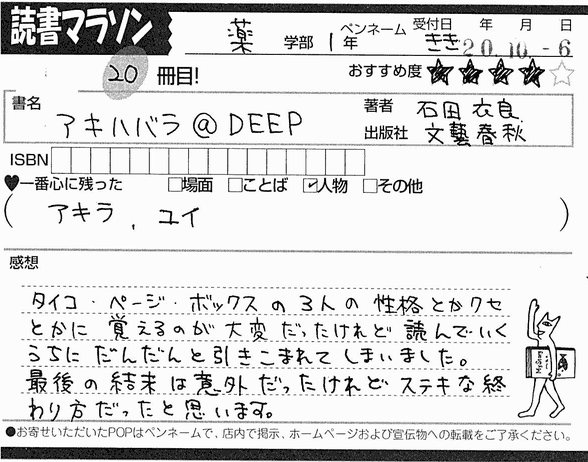 読書マラソン
薬 学部 1年 ペンネーム きき 受付日 年 月 日
20.10.-6
20 冊目! おすすめ度 ★★★★☆
書名 アキハバラ@DEEP 著者 石田 衣良
出版社 文藝春秋
ISBN
♥一番心に残った □場面 □ことば ☑人物 □その他
(アキラ, ユイ)
感想
タイコ・ページ・ボックスの3人の性格とかクセ
とかに覚えるのが大変だったけれど読んでいく
うちにだんだんと引きこまれてしまいました。
最後の結末は意外だったけれどステキな終
わり方だったと思います。
●お寄せいただいたPOPはペンネームで、店内で掲示、ホームページおよび宣伝物への転載をご了承ください。